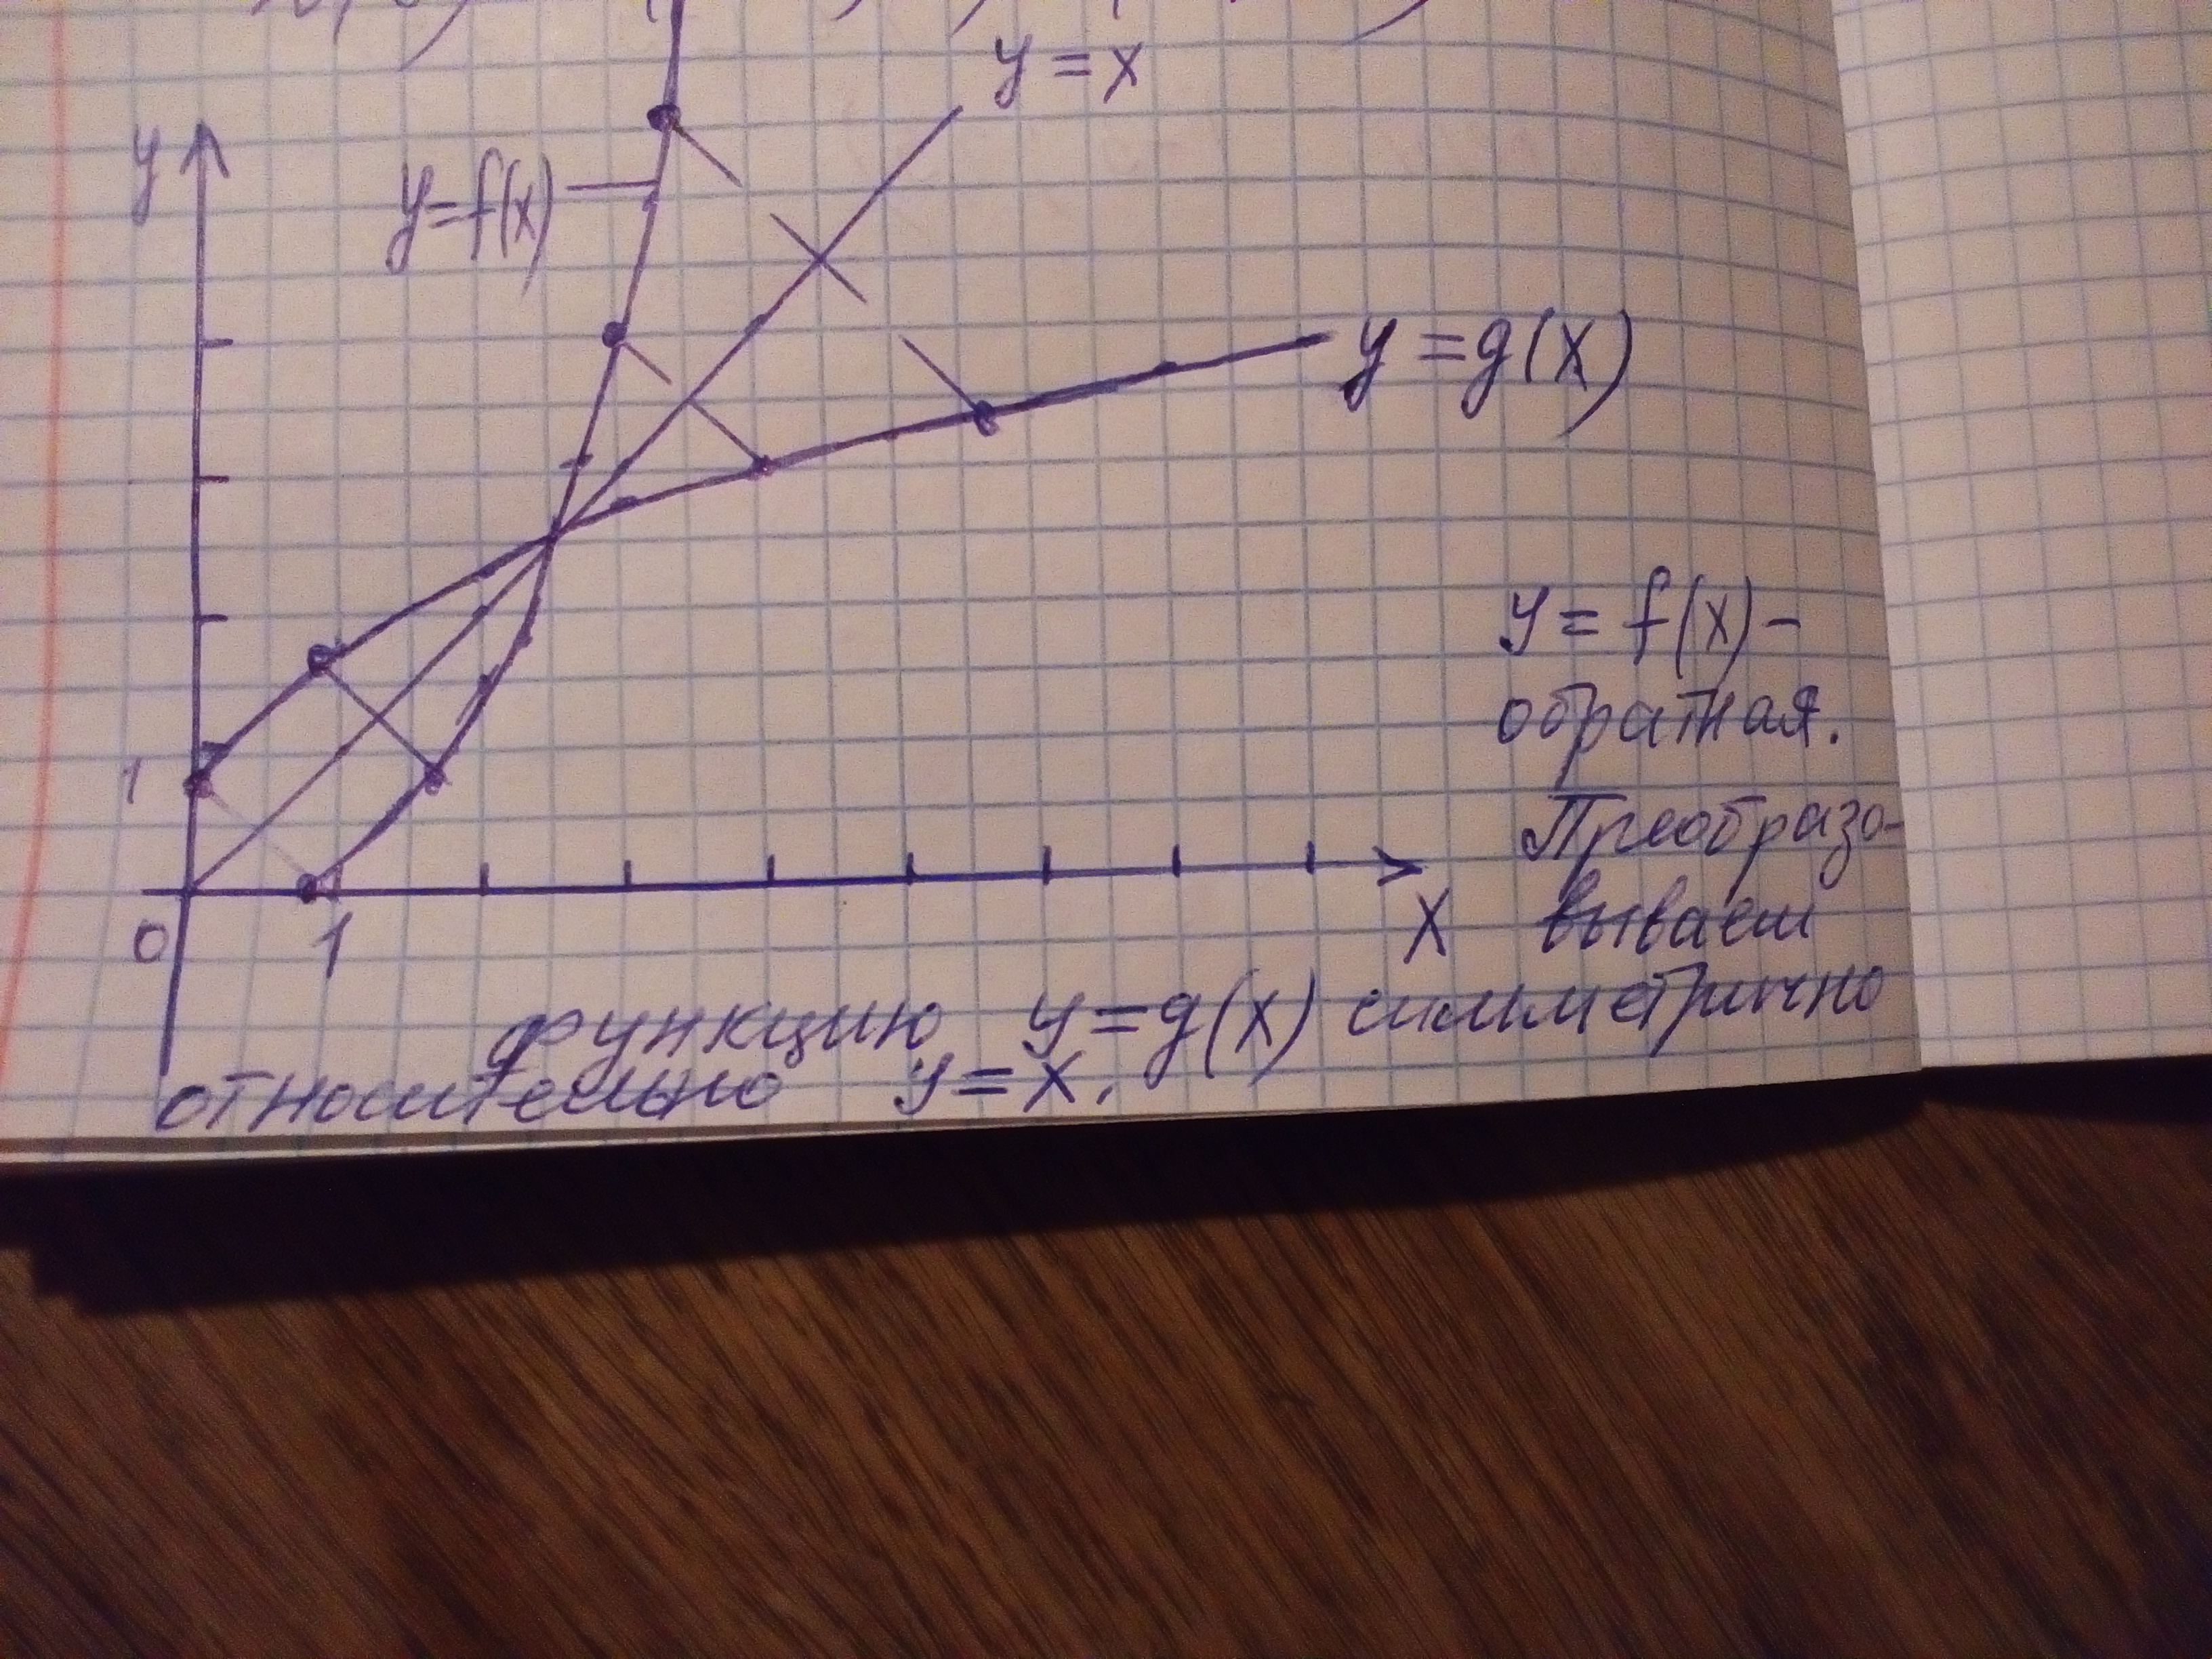 y = x
y
y=f(x)
y = g(x)
y = f(x) -
обратная.
1
Преобразо-
0
1
X
вываем
функцию y = g(x) симметрично
относительно y = x.